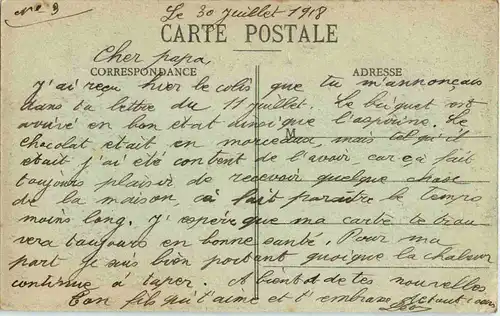 No 9
Le 30 juillet 1918
CARTE POSTALE
Cher papa,
CORRESPONDANCE
ADRESSE
J'ai reçu hier le colis que tu m'annonçais
dans ta lettre du 11 juillet. Le briquet est
arrivé en bon état ainsi que l'aspirine. Le
chocolat était en morceaux, mais tel qu'il
M
était j'ai été content de l'avoir, car ça fait
toujours plaisir de recevoir quelque chose
de la maison, ça fait paraître le temps
moins long. J'espère que ma carte te trou
vera toujours en bonne santé. Pour ma
part je suis bien portant quoique la chaleur
continue à taper. A bientôt de tes nouvelles
Ton fils qui t'aime et t'embrasse